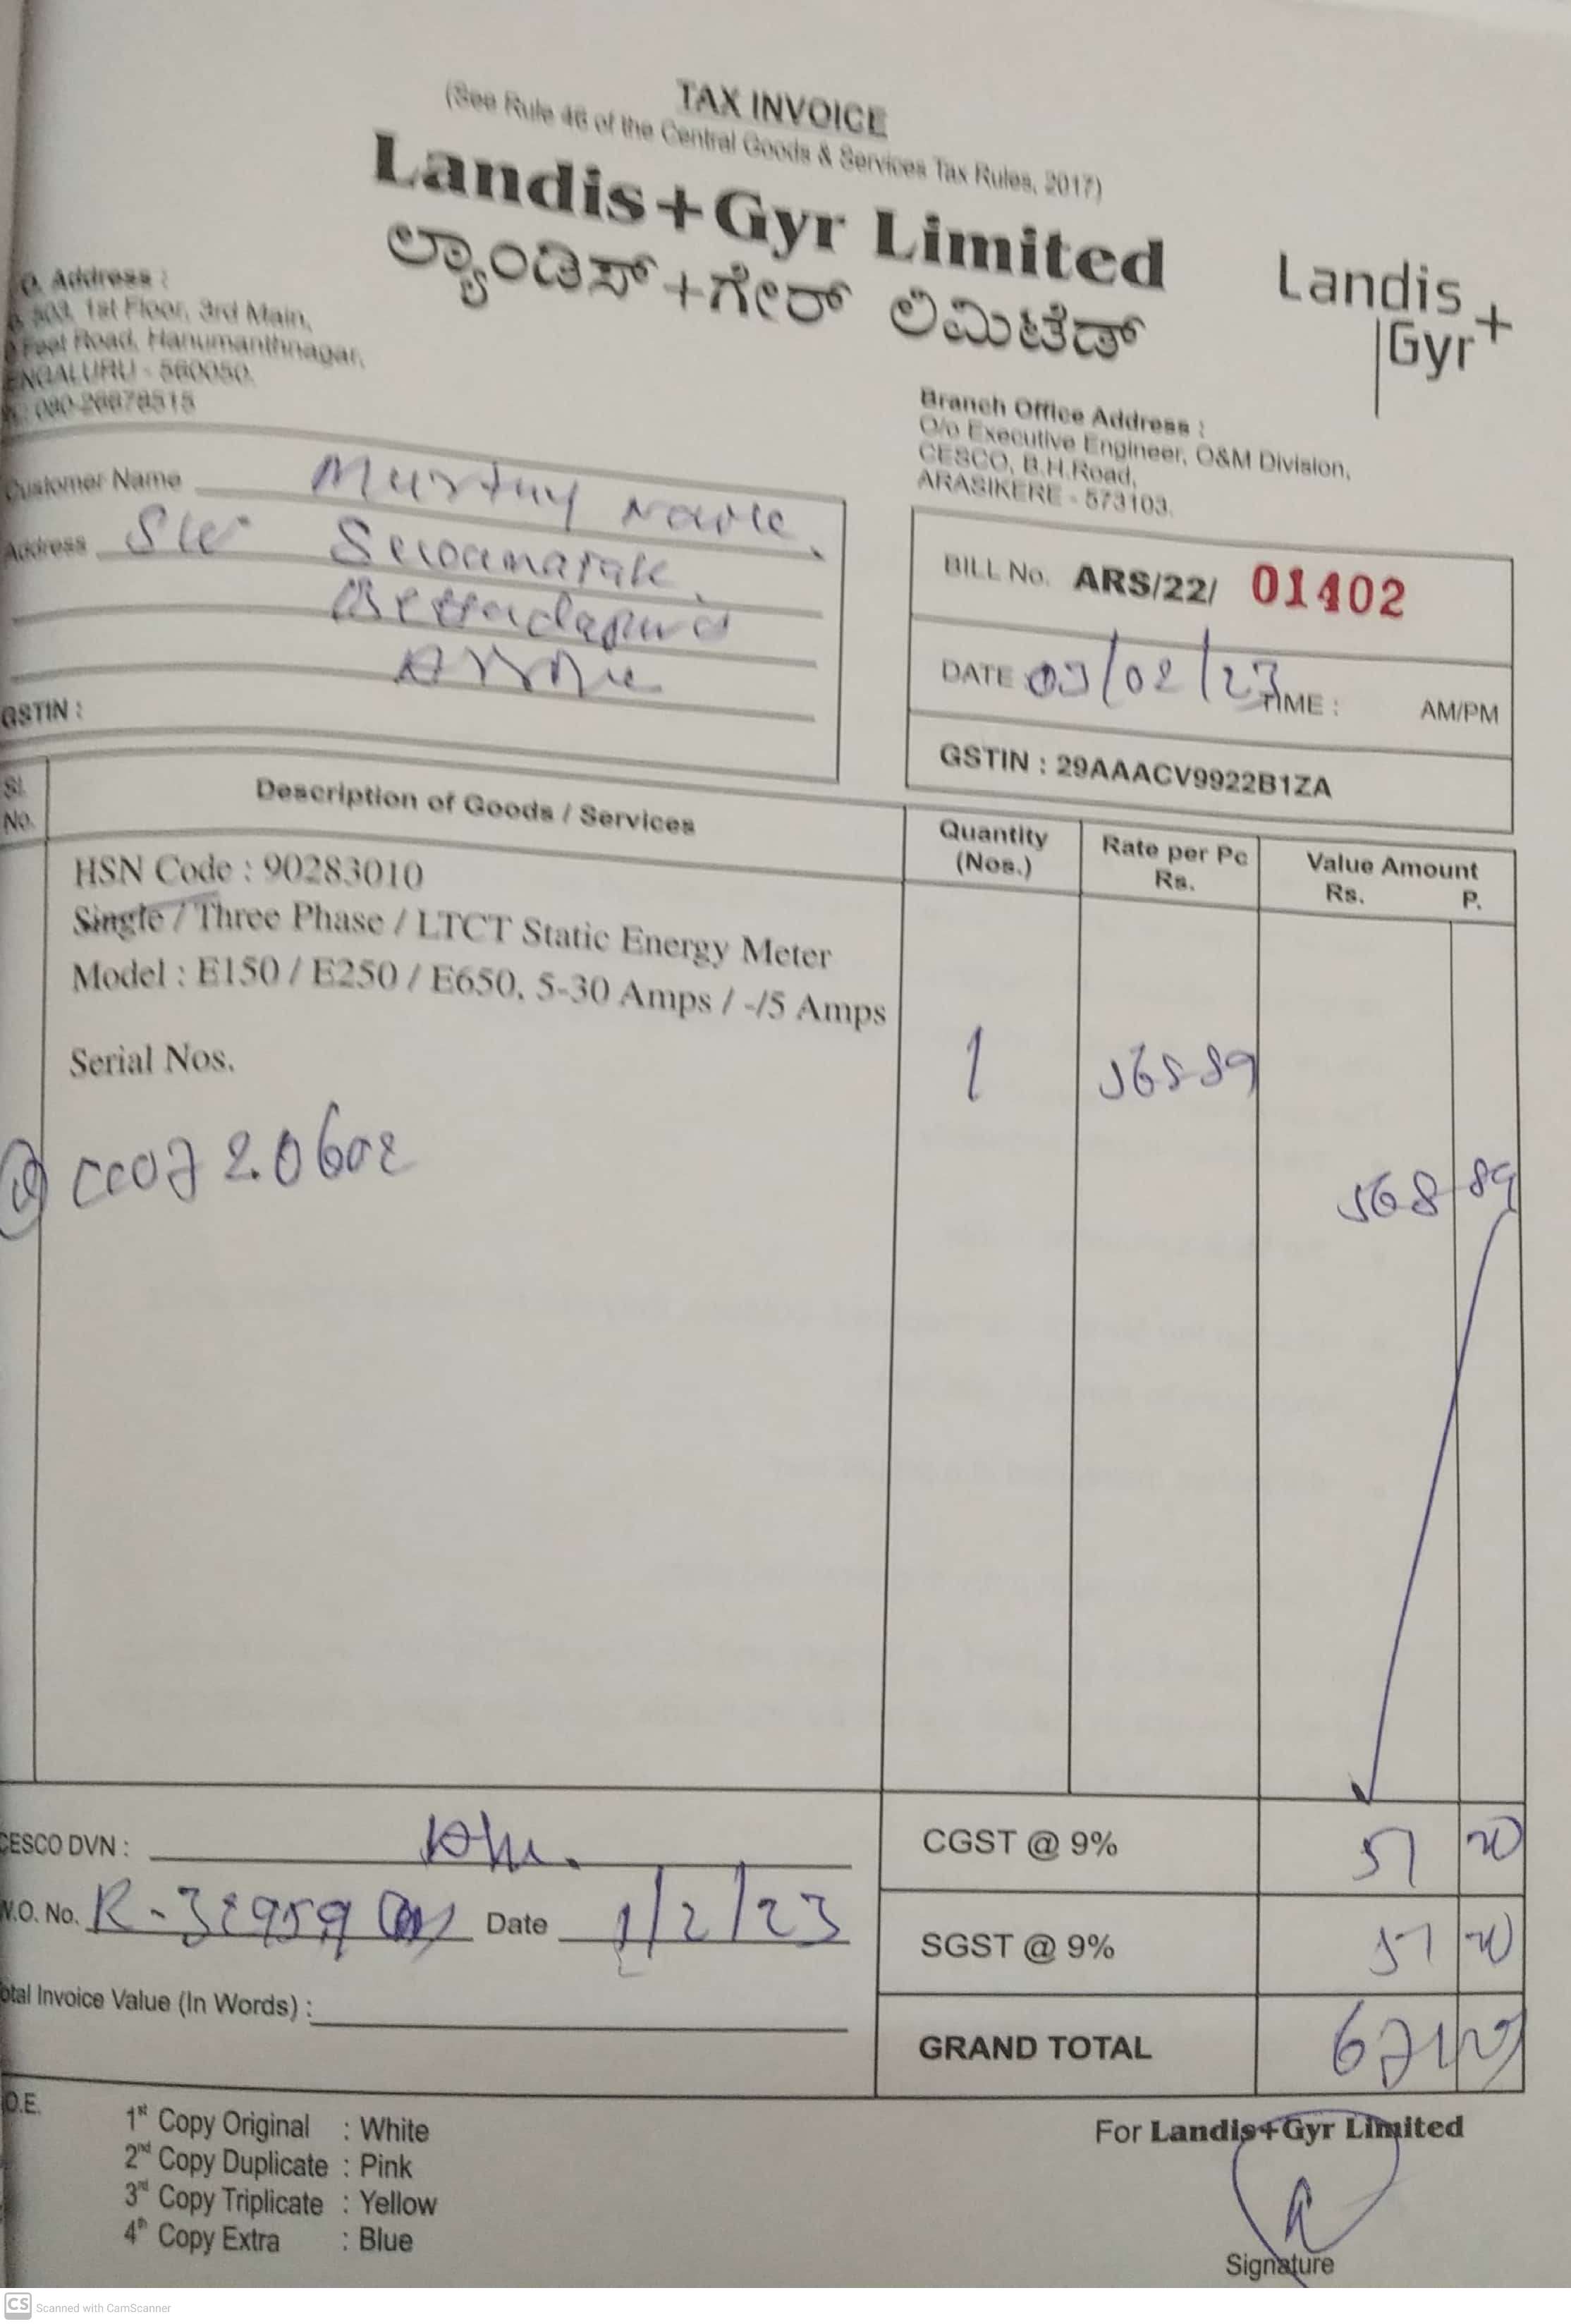 TAX INVOICE
(See Rule 46 of the Central Goods & Services Tax Rules, 2017)
Landis+Gyr Limited
ಲ್ಯಾಂಡಿಸ್+ಗೇರ್ ಲಿಮಿಟೆಡ್
Landis+
Gyr
Address :
503, 1st Floor, 3rd Main,
Feet Road, Hanumanthnagar,
ENGALURU - 560050.
: 080-26678515
Branch Office Address :
O/o Executive Engineer, O&M Division,
CESCO, B.H.Road,
ARASIKERE - 573103.
Customer Name Murthy Naik
Address
Bettadapura
GSTIN :
BILL No. ARS/22/ 01402
DATE 03/02/23 TIME : AM/PM
GSTIN : 29AAACV9922B1ZA
Sl. No. Description of Goods / Services Quantity (Nos.) Rate per Pc Rs. Value Amount Rs. P.
HSN Code : 90283010
Single / Three Phase / LTCT Static Energy Meter
Model : E150 / E250 / E650, 5-30 Amps / -/5 Amps
Serial Nos.
1 568-89
568 89
CESCO DVN :
CGST @ 9% 51 20
W.O. No. R-32959 Date 1/2/23
SGST @ 9% 51 20
otal Invoice Value (In Words) :
GRAND TOTAL 671
O.E.
1st Copy Original : White
2nd Copy Duplicate : Pink
3rd Copy Triplicate : Yellow
4th Copy Extra : Blue
For Landis+Gyr Limited
Signature
CS Scanned with CamScanner